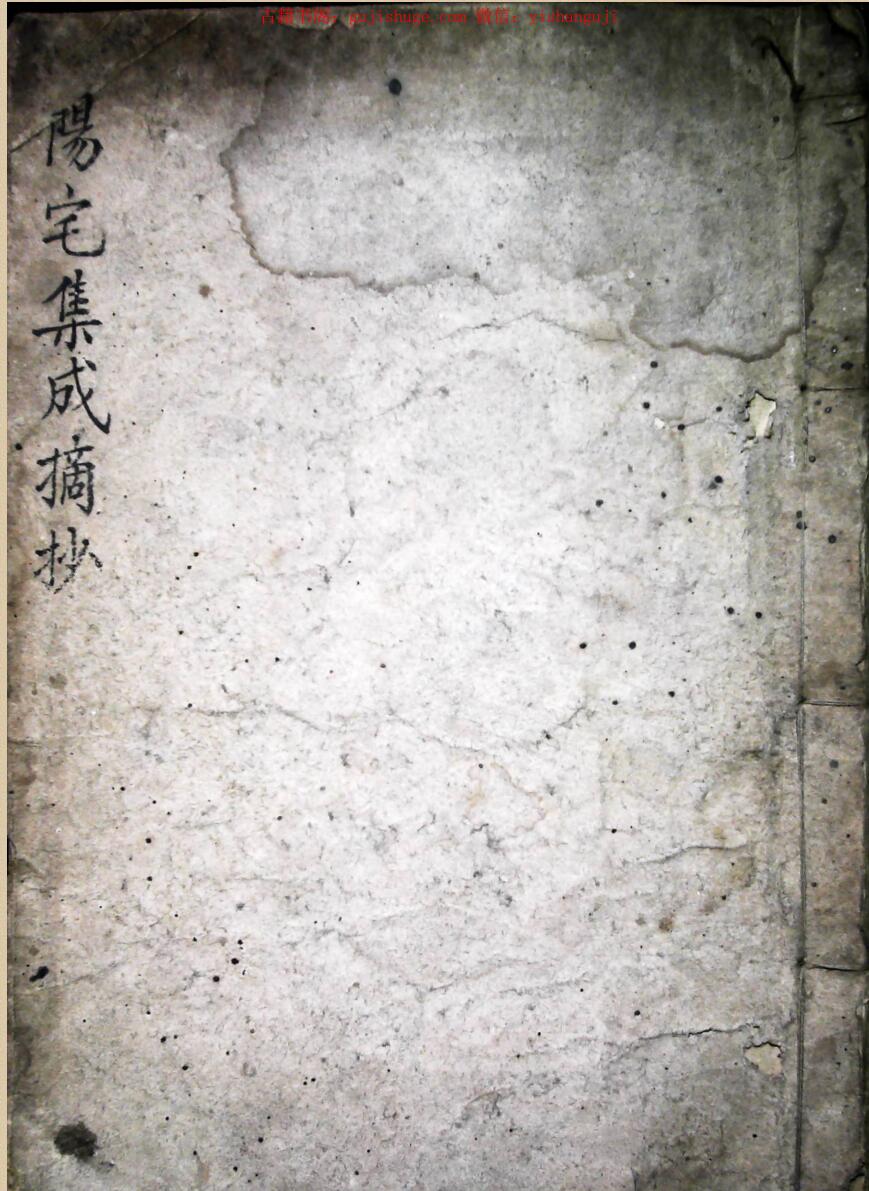 古籍书阁：gujishuge.com 微信：yishanguji
陽宅集成摘抄